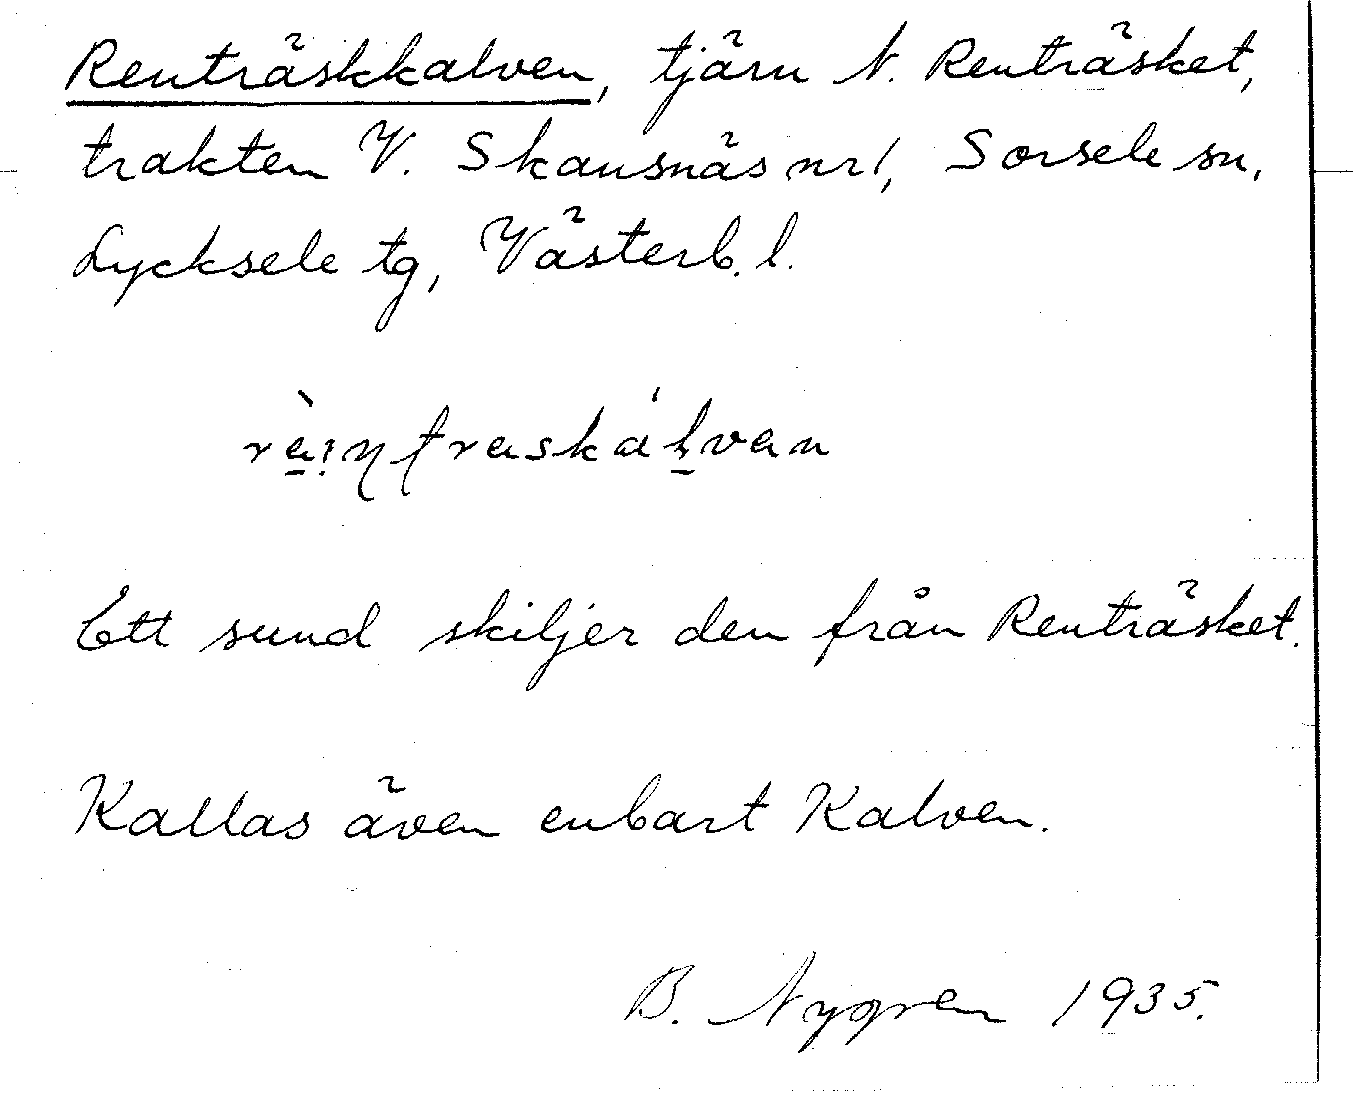 Renträskkalven, tjärn N. Renträsket,
trakten V. Skansnäs nr 1, Sorsele sn,
Lycksele tg, Västerb. l.
Ett sund skiljer den från Renträsket.
Kallas även enbart Kalven.
B. Nygren 1935.